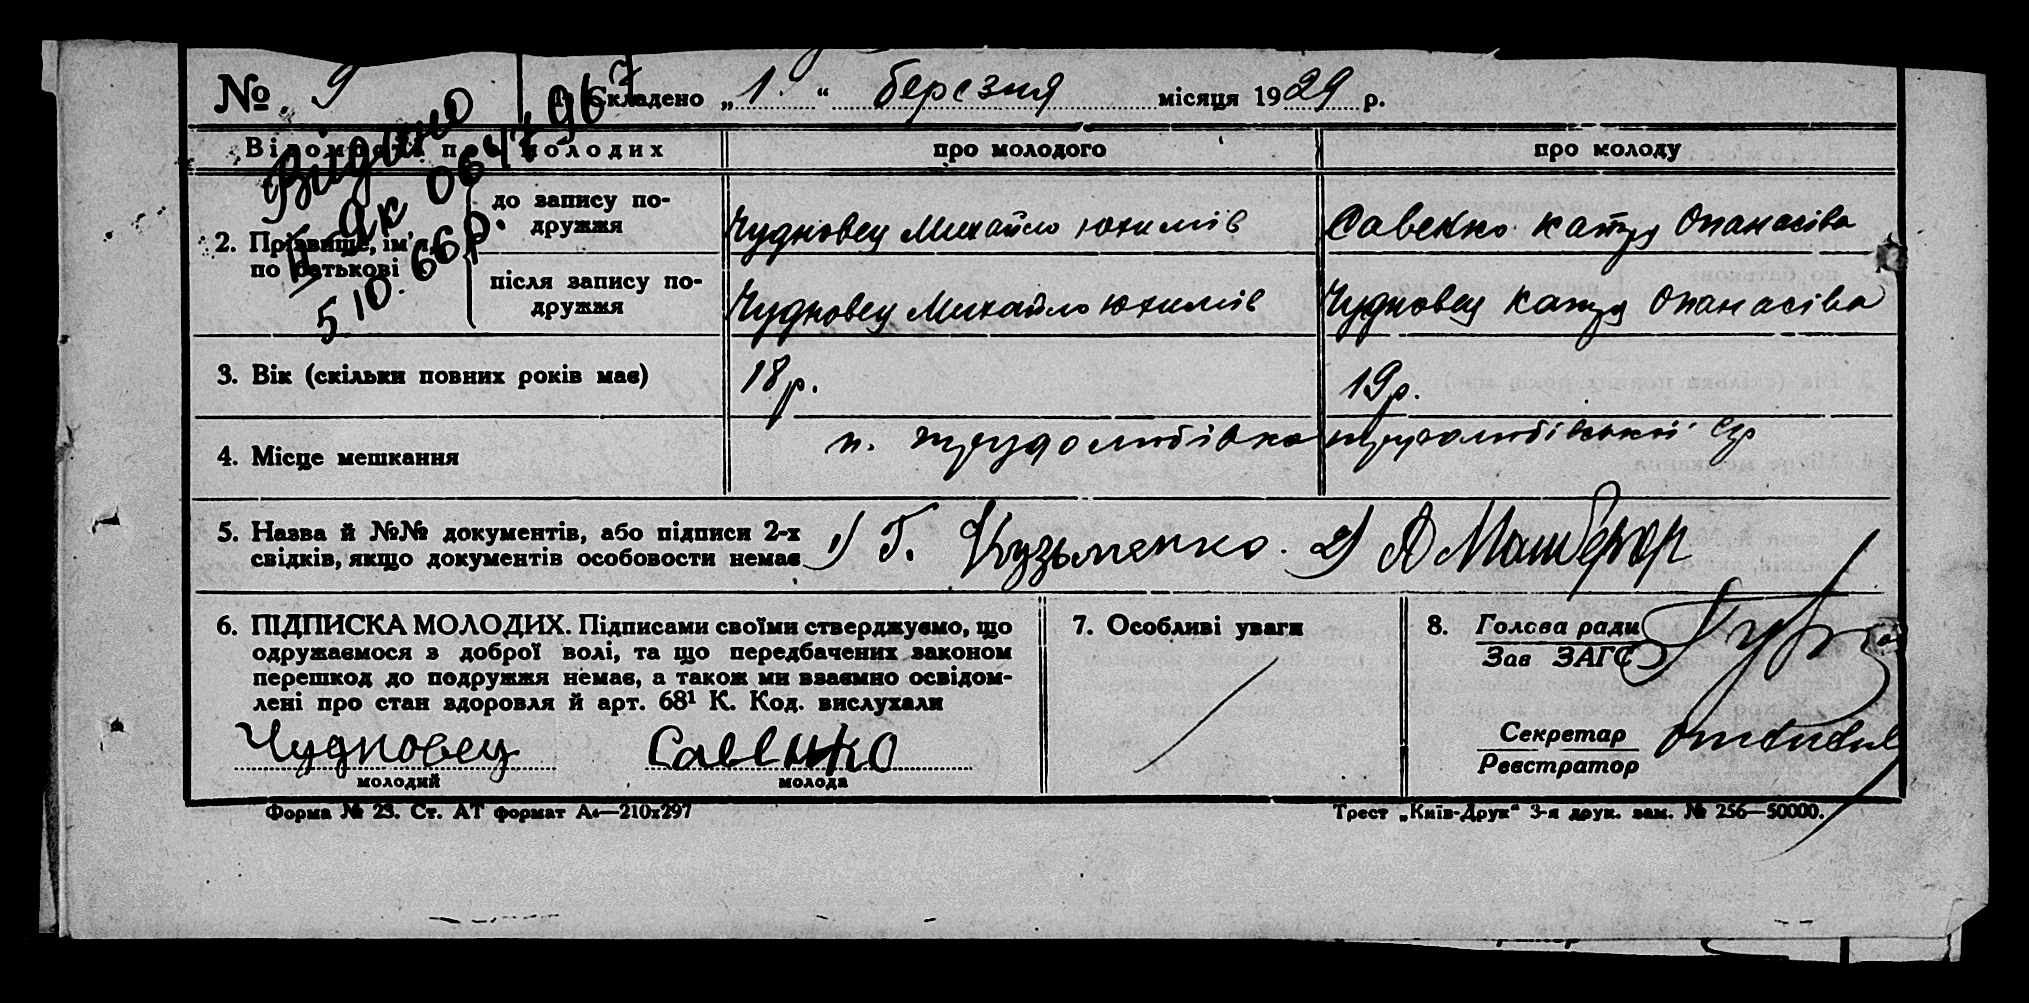 № 9 1. Складено „1.“ березня місяця 1929 р.
Видано
ІІ-ЯК 064796
5.10.66р.
Відомості про молодих про молодого про молоду
2. Прізвище, ім'я, по батькові
до запису подружжя Чудновец Михайло Юхимів Савенко Катря Опанасівна
після запису подружжя Чудновец Михайло Юхимів Чудновец Катря Опанасівна
3. Вік (скільки повних років має) 18 р. 19 р.
4. Місце мешкання п. Трудолюбівка Трудолюбівської с/р
5. Назва й №№ документів, або підписи 2-х 1) Г. Кузьменко. 2) А
свідків, якщо документів особовости немає
6. ПІДПИСКА МОЛОДИХ. Підписами своїми стверджуємо, що
одружаємося з доброї волі, та що передбачених законом
перешкод до подружжя немає, а також ми взаємно освідом-
лені про стан здоровля й арт. 68¹ К. Код. вислухали
Чудновец Савенко
молодий молода
7. Особливі уваги
8. Голова ради
Зав ЗАГС
Секретар
Реєстратор
Форма № 23. Ст. АТ формат А₄—210х297 Трест „Київ-Друк“ 3-я друк. зам. № 256—50000.